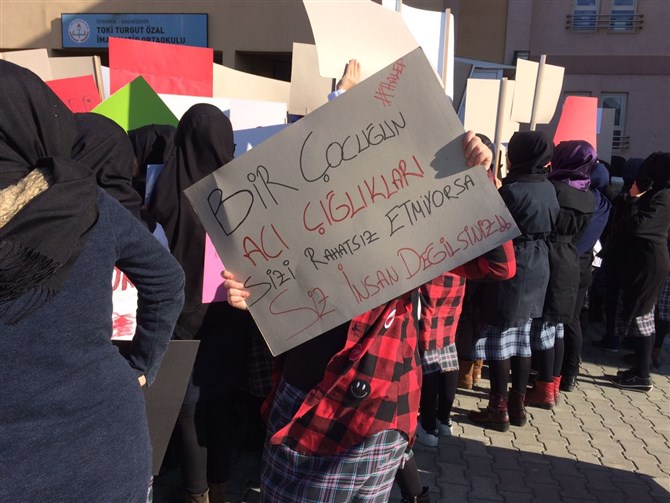 TOKİ TURGUT ÖZAL
İMAM HATİP ORTAOKULU
#HALEP
BİR ÇOCUĞUN
ACI ÇIĞLIKLARI
SİZİ RAHATSIZ ETMİYORSA
SİZ İNSAN DEĞİLSİNİZ